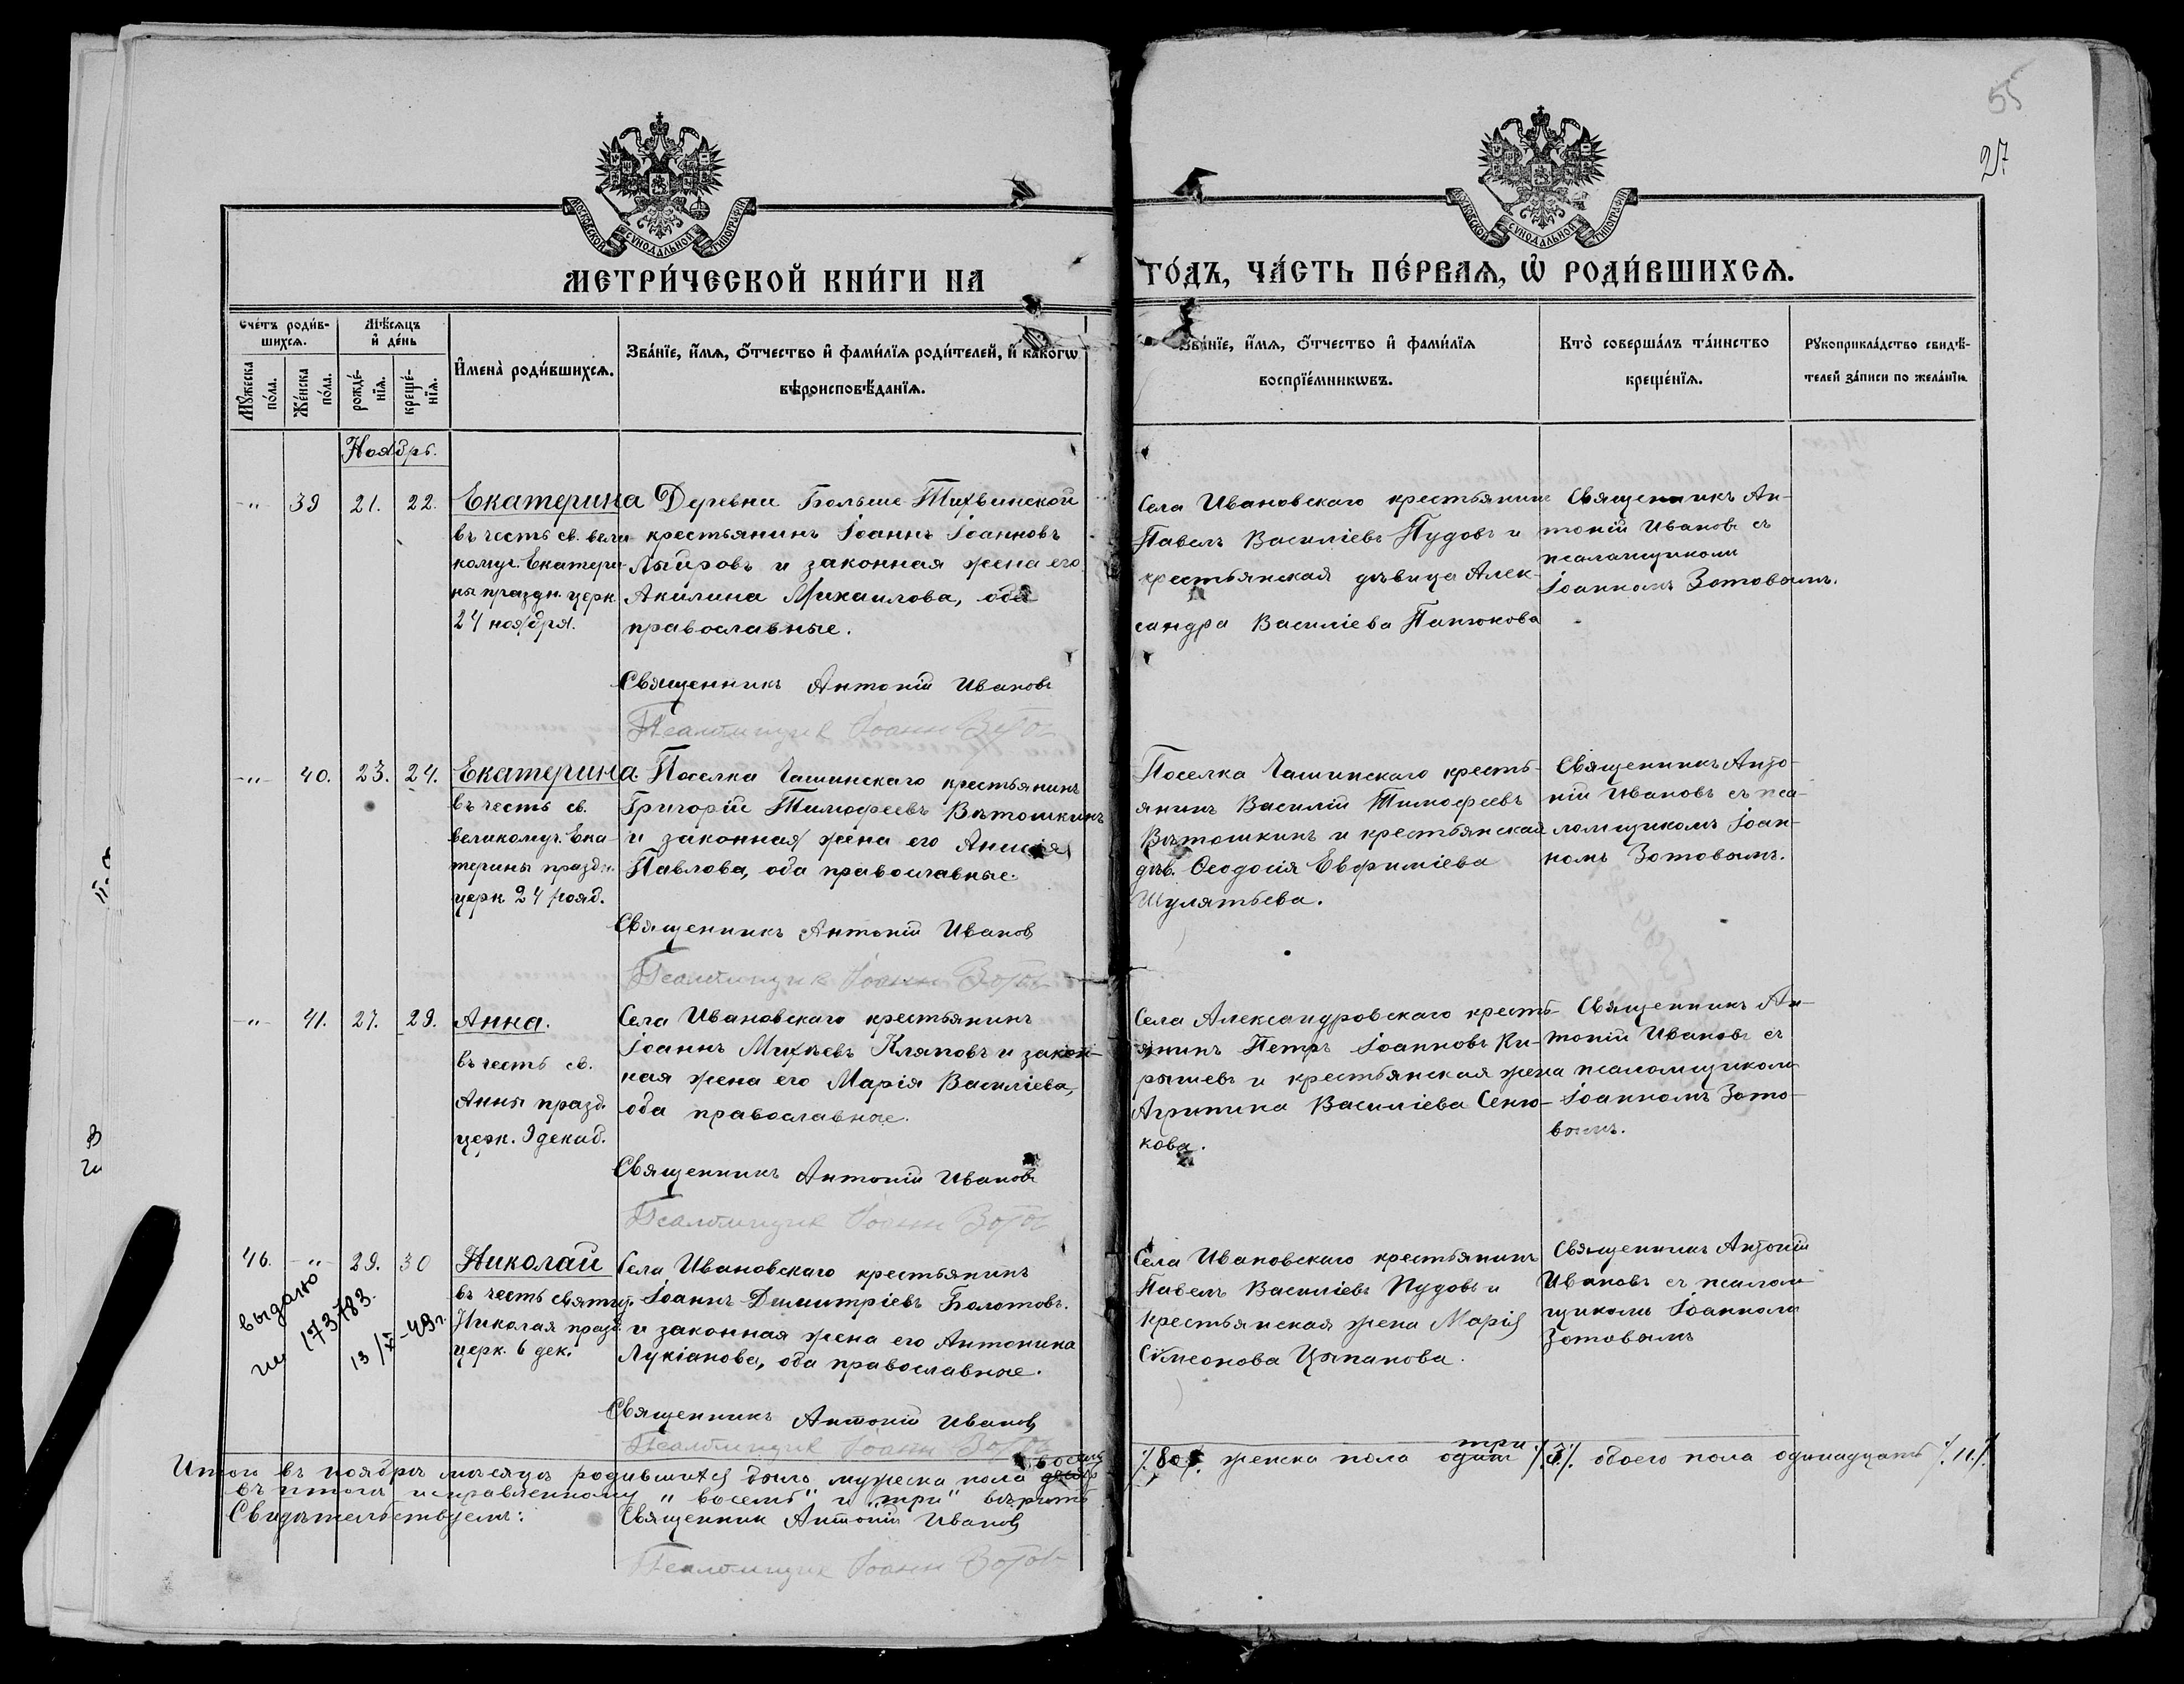 55
27
МОСКОВСКОЙ СѴНОДАЛЬНОЙ ТИПОГРАФІИ
МОСКОВСКОЙ СѴНОДАЛЬНОЙ ТИПОГРАФІИ
МЕТРИ́ЧЕСКОЙ КНИ́ГИ НА
ГО́ДЪ, ЧА́СТЬ ПЕ́РВАЯ, Ѡ҆ РОДИ́ВШИХСЯ.
Сче́тъ роди́в-
шихся.
Мѣ́сяцъ
и҆ де́нь
Мꙋ́жеска по́ла.
Же́нска по́ла.
рожде́-
нїя.
креще́-
нїя.
И҆мена̀ роди́вшихся.
Зва́нїе, и҆́мя, ѻ҆́тчество и҆ фами́лїя роди́телей, и҆ како́гѡ
вѣроисповѣ́данїя.
Зва́нїе, и҆́мя, ѻ҆́тчество и҆ фами́лїя
воспрїе́мникѡвъ.
Кто̀ соверша́лъ та́инство
креще́нїя.
Рꙋкоприкла́дство свидѣ́-
телей за́писи по жела́нїю.
Ноябрь.
-"- 39 21. 22. Екатерина
въ честь св. вели-
комуч. Екатери-
ны праздн. церк
24 ноября.
Деревни Больше-Тихвинской
крестьянинъ Іоаннъ Іоанновъ
и законная жена его
Акилина Михаилова, оба
православные.
Священникъ Антоній Ивановъ
Псаломщик Іоанн Зотов
Села Ивановскаго крестьянин
Павелъ Василіевъ Пудовъ и
крестьянская дѣвица Алек-
сандра Василіева Панюкова
Священникъ Ан-
тоній Ивановъ съ
псаломщикомъ
Іоанномъ Зотовымъ.
-"- 40. 23. 24. Екатерина.
въ честь св.
великомуч. Ека-
терины праздн.
церк 24 нояб.
Поселка Чашинскаго крестьянинъ
Григорій Тимофеевъ Вѣтошкинъ
и законная жена его Анисія
Павлова, оба православные.
Священникъ Антоній Иванов
Псаломщик Іоанн Зотов
Поселка Чашинскаго кресть-
янинъ Василій Тимофеевъ
Вѣтошкинъ и крестьянская
дѣв. Ѳеодосія Евфиміева
Шулятьева.
Священникъ Анто-
ній Ивановъ съ пса-
ломщикомъ Іоан-
номъ Зотовымъ.
-"- 41. 27. 29. Анна.
въ честь св.
Анны празд.
церк. 9 декаб.
Села Ивановскаго крестьянинъ
Іоаннъ Михѣевъ Кляповъ и закон-
ная жена его Марія Василіева,
оба православные.
Священникъ Антоній Ивановъ
Псаломщик Іоанн Зотов
Села Александровскаго кресть-
янинъ Петръ Іоанновъ Ки-
рышевъ и крестьянская жена
Агрипина Василіева Сеню-
кова.
Священникъ Ан-
тоній Ивановъ съ
псаломщикомъ
Іоанномъ Зото-
вымъ.
46. -"- 29. 30 Николай
въ честь святит.
Николая празд.
церк. 6 дек.
выдано
173183.
13/XI-49г.
Села Ивановскаго крестьянинъ
Іоаннъ Димитріевъ Болотовъ.
и законная жена его Антонина
Лукіанова, оба православные.
Священникъ Антоній Иванов
Псаломщик Іоанн Зотов
Села Ивановскаго крестьянинъ
Павелъ Василіевъ Пудовъ и
крестьянская жена Марія
Сѵмеонова Цыпанова.
Священникъ Антоній
Ивановъ съ псалом-
щикомъ Іоанномъ
Зотовымъ
Итого въ ноябрѣ мѣсяцѣ родившихся было мужеска пола восемь
/.8./. женска пола три /.3./. обоего пола одинадцать /.11./.
въ итогѣ исправленному "восемь" и "три" вѣрить
Свидѣтельствуемъ:
Священник Антоній Иванов
Псаломщик Іоанн Зотов